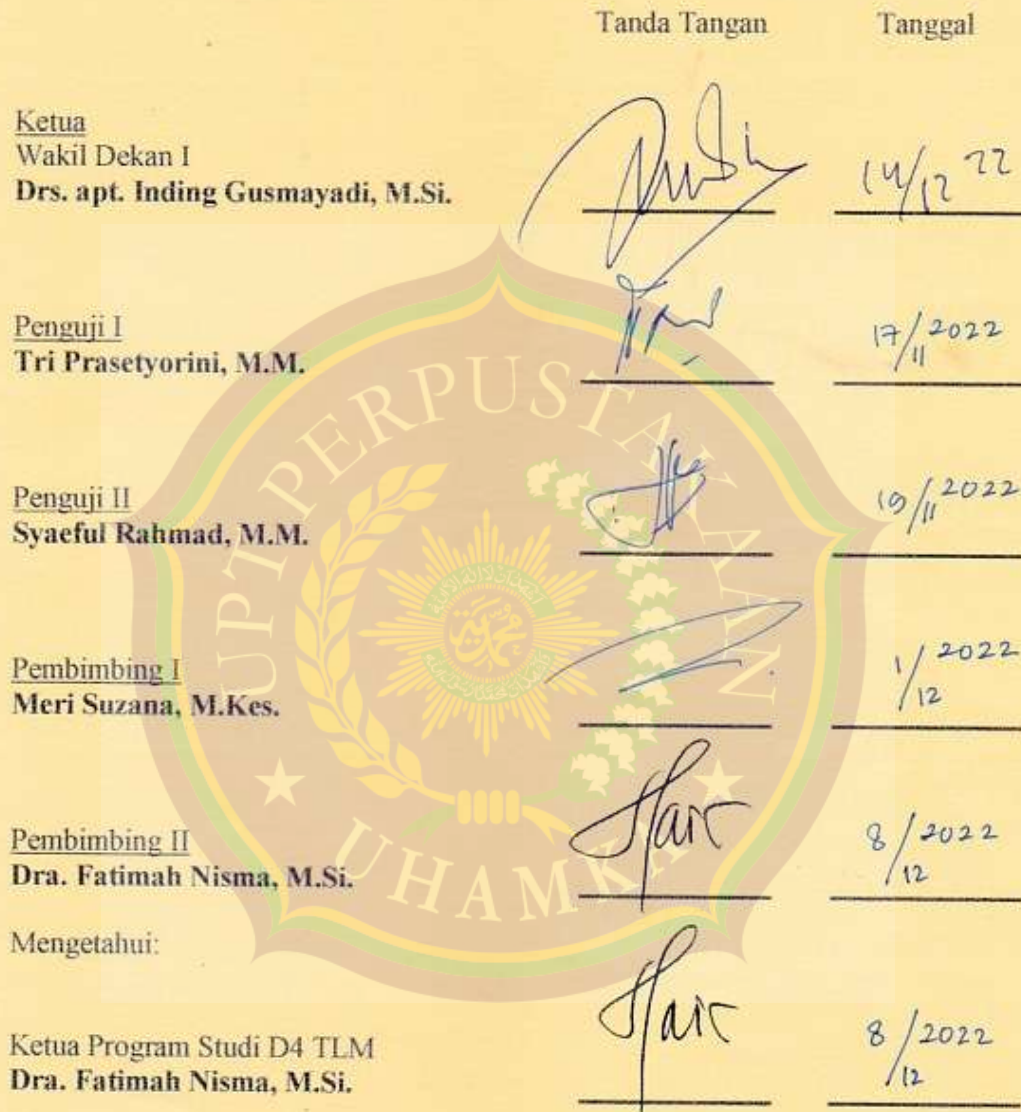 Tanda Tangan Tanggal
Ketua
Wakil Dekan I
Drs. apt. Inding Gusmayadi, M.Si. 14/12 22
Penguji I
Tri Prasetyorini, M.M. 17/11 2022
Penguji II
Syaeful Rahmad, M.M. 19/11 2022
Pembimbing I
Meri Suzana, M.Kes. 1/12 2022
Pembimbing II
Dra. Fatimah Nisma, M.Si. 8/12 2022
Mengetahui:
Ketua Program Studi D4 TLM
Dra. Fatimah Nisma, M.Si. 8/12 2022
UPT PERPUSTAKAAN
UHAMKA